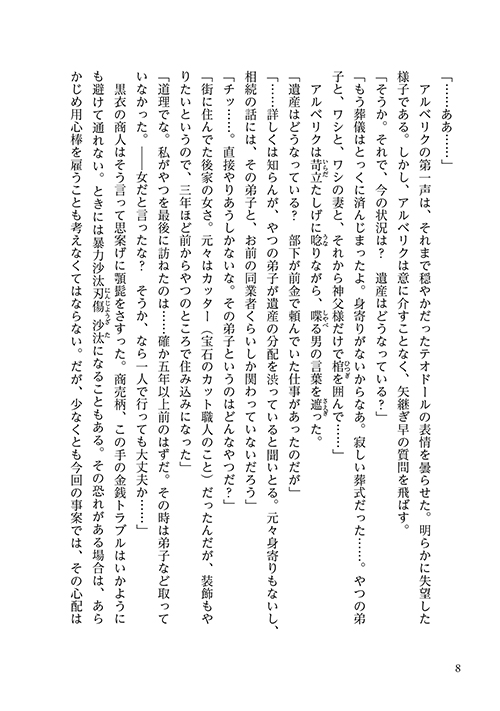 「……ああ……」
　アルベリクの第一声は、それまで穏やかだったテオドールの表情を曇らせた。明らかに失望した
様子である。しかし、アルベリクは意に介すことなく、矢継ぎ早の質問を飛ばす。
「そうか。それで、今の状況は？　遺産はどうなっている？」
「もう葬儀はとっくに済んじまったよ。身寄りがないからなあ。寂しい葬式だった……。やつの弟
子と、ワシと、ワシの妻と、それから神父様だけで棺を囲んで……」
　アルベリクは苛立たしげに唸りながら、喋る男の言葉を遮った。
「遺産はどうなっている？　部下が前金で頼んでいた仕事があったのだが」
「……詳しくは知らんが、やつの弟子が遺産の分配を渋っていると聞いとる。元々身寄りもないし、
相続の話には、その弟子と、お前の同業者くらいしか関わっていないだろう」
「チッ……。直接やりあうしかないな。その弟子というのはどんなやつだ？」
「街に住んでた後家の女さ。元々はカッター（宝石のカット職人のこと）だったんだが、装飾もや
りたいというので、三年ほど前からやつのところで住み込みになった」
「道理でな。私がやつを最後に訪ねたのは……確か五年以上前のはずだ。その時は弟子など取って
いなかった。――女だと言ったな？　そうか、なら一人で行っても大丈夫か……」
　黒衣の商人はそう言って思案げに顎髭をさすった。商売柄、この手の金銭トラブルはいかように
も避けて通れない。ときには暴力沙汰刃傷沙汰になることもある。その恐れがある場合は、あら
かじめ用心棒を雇うことも考えなくてはならない。だが、少なくとも今回の事案では、その心配は
8